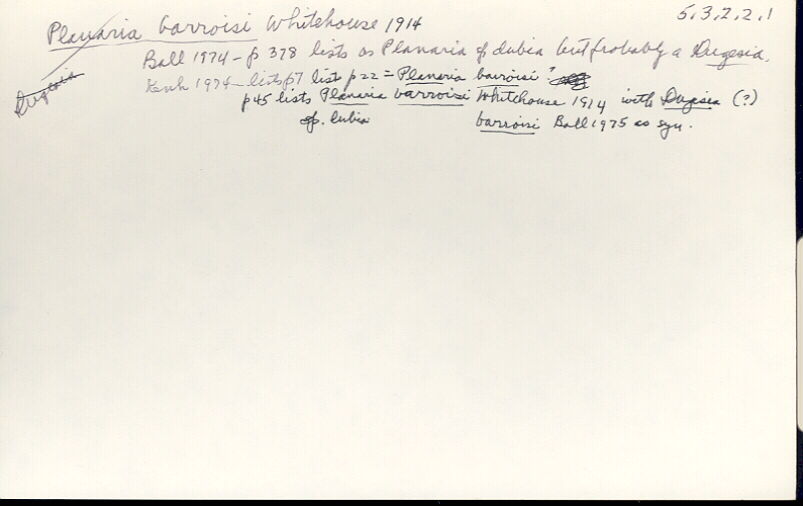 5.3.2.2.1
Planaria barroisi Whitehouse 1914
Ball 1974 - p 378 lists as Planaria sp dubia but probably a Dugesia.
Dugesia
Kenk 1974 - lists p7 list p22 = Planaria barroisi?
p45 lists Planaria barroisi Whitehouse 1914 with Dugesia (?)
sp. dubia barroisi Ball 1975 as syn.